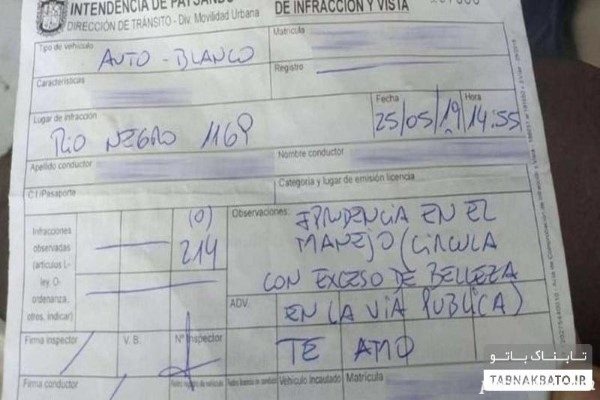 INTENDENCIA DE PAYSANDÚ
DIRECCIÓN DE TRÁNSITO - Div. Movilidad Urbana
DE INFRACCIÓN Y VISTA
Tipo de vehículo
AUTO - BLANCO
Matrícula
Características
Registro
Lugar de infracción
RIO NEGRO 1169
Fecha
25/05/19
Hora
14:55
Apellido conductor
Nombre conductor
C.I/Pasaporte
Categoría y lugar de emisión licencia
Infracciones
observadas
(artículos L-
ley, O-
ordenanza,
otros, indicar)
(0)
214
Observaciones:
EN EL
MANEJO (CIRCULA
CON EXCESO DE BELLEZA
ADV.
EN LA VIA PUBLICA)
TE AMO
Firma inspector
V. B.
Nº Inspector
Firma conductor
Vehículo incautado
Matrícula
تابناک باتو
TABNAKBATO.IR